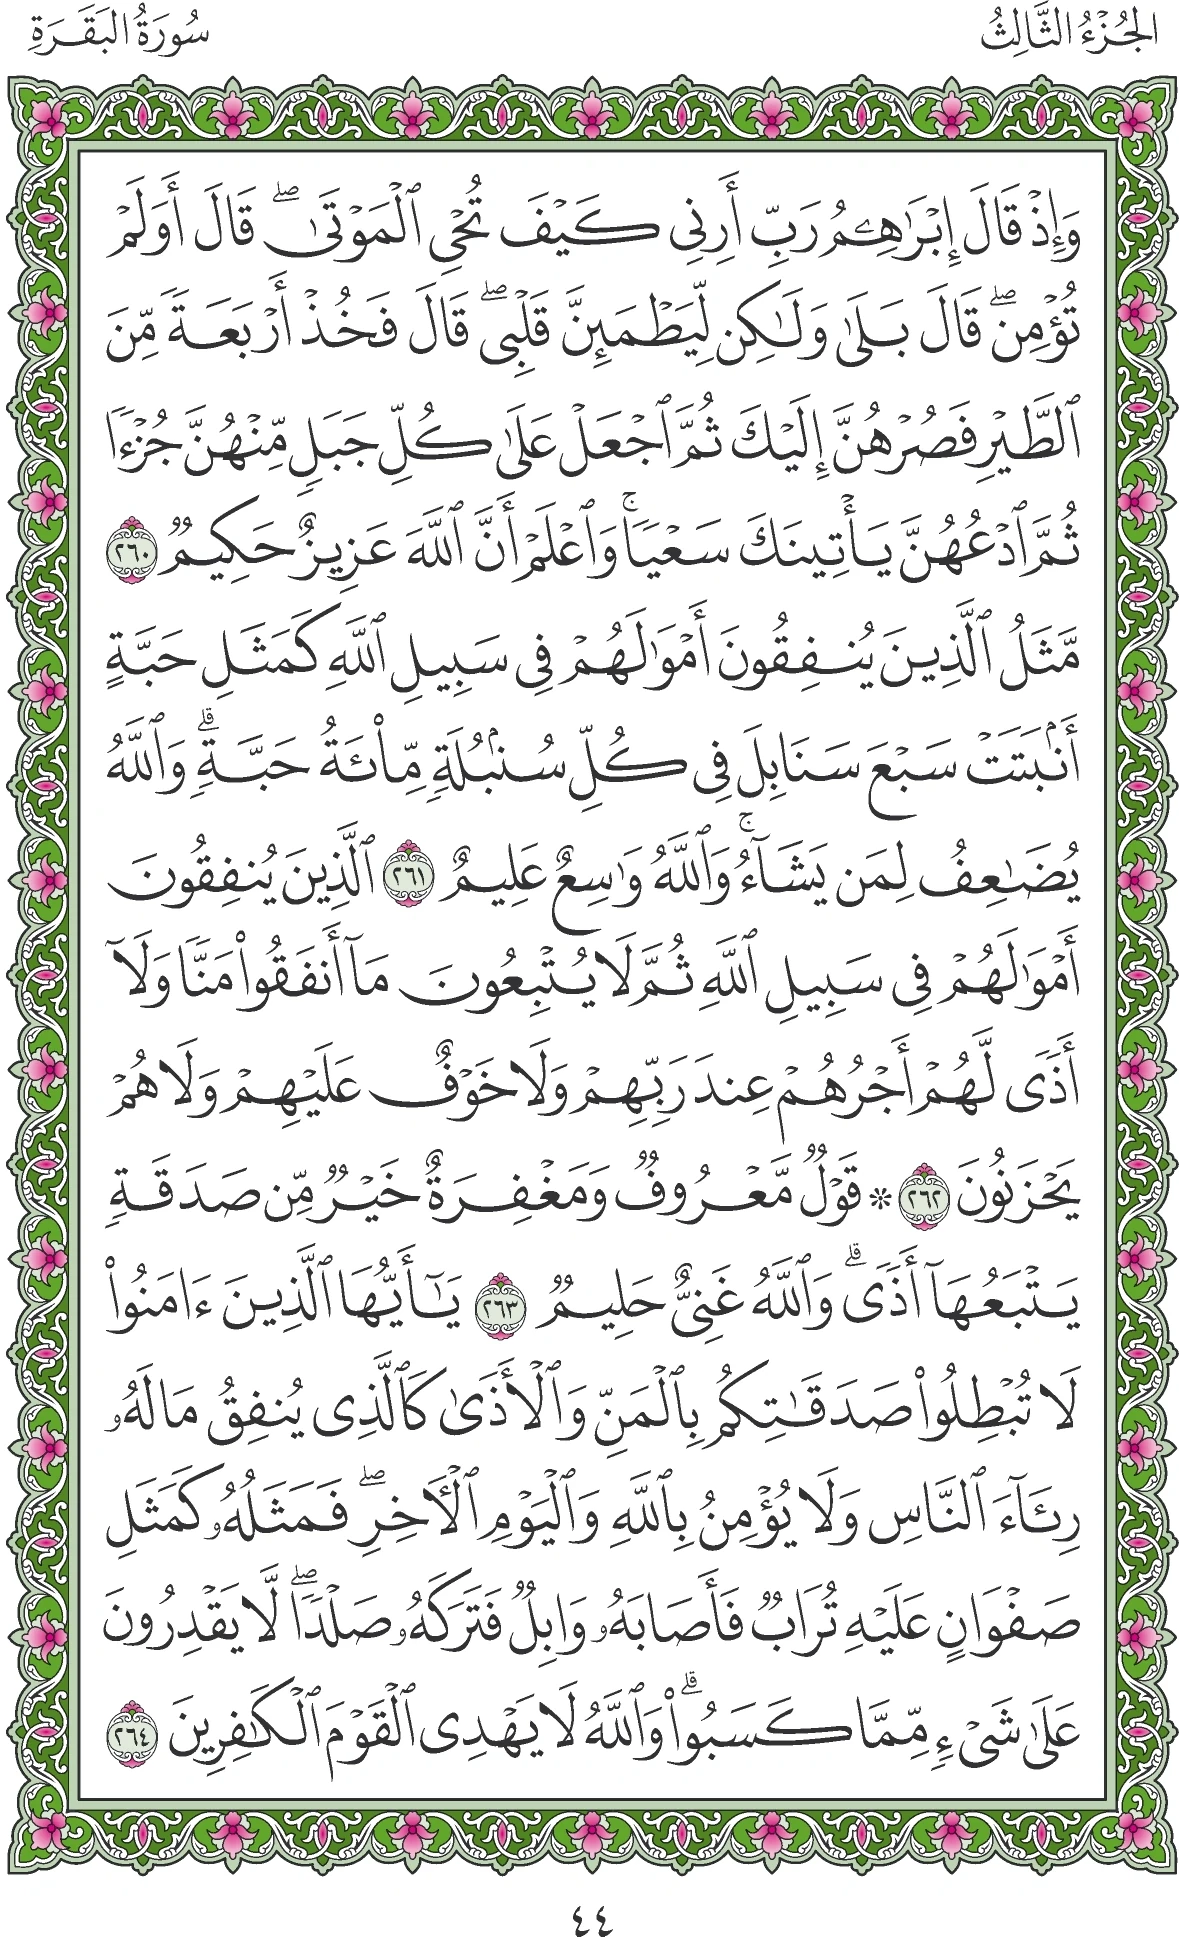 الجُزْءُ الثَّالِثُ
سُورَةُ البَقَرَةِ
وَإِذۡ قَالَ إِبۡرَٰهِـۧمُ رَبِّ أَرِنِي كَيۡفَ تُحۡيِ ٱلۡمَوۡتَىٰۖ قَالَ أَوَلَمۡ
تُؤۡمِنۖ قَالَ بَلَىٰ وَلَٰكِن لِّيَطۡمَئِنَّ قَلۡبِيۖ قَالَ فَخُذۡ أَرۡبَعَةٗ مِّنَ
ٱلطَّيۡرِ فَصُرۡهُنَّ إِلَيۡكَ ثُمَّ ٱجۡعَلۡ عَلَىٰ كُلِّ جَبَلٖ مِّنۡهُنَّ جُزۡءٗا
ثُمَّ ٱدۡعُهُنَّ يَأۡتِينَكَ سَعۡيٗاۚ وَٱعۡلَمۡ أَنَّ ٱللَّهَ عَزِيزٌ حَكِيمٞ ٢٦٠
مَّثَلُ ٱلَّذِينَ يُنفِقُونَ أَمۡوَٰلَهُمۡ فِي سَبِيلِ ٱللَّهِ كَمَثَلِ حَبَّةٍ
أَنۢبَتَتۡ سَبۡعَ سَنَابِلَ فِي كُلِّ سُنۢبُلَةٖ مِّاْئَةُ حَبَّةٖۗ وَٱللَّهُ
يُضَٰعِفُ لِمَن يَشَآءُۚ وَٱللَّهُ وَٰسِعٌ عَلِيمٌ ٢٦١ ٱلَّذِينَ يُنفِقُونَ
أَمۡوَٰلَهُمۡ فِي سَبِيلِ ٱللَّهِ ثُمَّ لَا يُتۡبِعُونَ مَآ أَنفَقُواْ مَنّٗا وَلَآ
أَذٗى لَّهُمۡ أَجۡرُهُمۡ عِندَ رَبِّهِمۡ وَلَا خَوۡفٌ عَلَيۡهِمۡ وَلَا هُمۡ
يَحۡزَنُونَ ٢٦٢ ۞ قَوۡلٞ مَّعۡرُوفٞ وَمَغۡفِرَةٌ خَيۡرٞ مِّن صَدَقَةٖ
يَتۡبَعُهَآ أَذٗىۗ وَٱللَّهُ غَنِيٌّ حَلِيمٞ ٢٦٣ يَٰٓأَيُّهَا ٱلَّذِينَ ءَامَنُواْ
لَا تُبۡطِلُواْ صَدَقَٰتِكُم بِٱلۡمَنِّ وَٱلۡأَذَىٰ كَٱلَّذِي يُنفِقُ مَالَهُۥ
رِئَآءَ ٱلنَّاسِ وَلَا يُؤۡمِنُ بِٱللَّهِ وَٱلۡيَوۡمِ ٱلۡأٓخِرِۖ فَمَثَلُهُۥ كَمَثَلِ
صَفۡوَانٍ عَلَيۡهِ تُرَابٞ فَأَصَابَهُۥ وَابِلٞ فَتَرَكَهُۥ صَلۡدٗاۖ لَّا يَقۡدِرُونَ
عَلَىٰ شَيۡءٖ مِّمَّا كَسَبُواْۗ وَٱللَّهُ لَا يَهۡدِي ٱلۡقَوۡمَ ٱلۡكَٰفِرِينَ ٢٦٤
٤٤